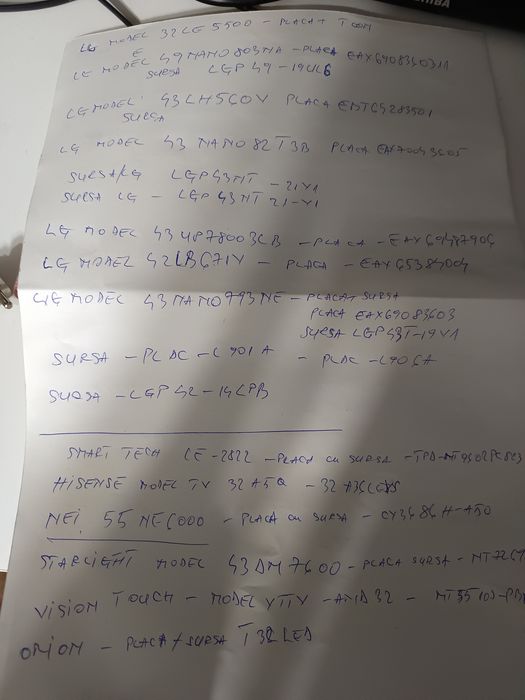 LG MODEL 32LE5500 - PLACA+ TCOM
LG MODEL 49NANO803NA - PLACA EAX69083603
SURSA LGP49-19UL6
LG MODEL 43LH560V PLACA
SURSA
LG MODEL 43 NANO 82T3B PLACA
SURSA LG LGP43NT - 21Y1
SURSA LG - LGP43NT 21-Y1
LG MODEL 43UP78003LB - PLACA - EAX69487904
LG MODEL 42LB671V - PLACA - EAX65384004
LG MODEL 43NANO793NE - PLACA+ SURSA
PLACA EAX69083603
SURSA LGP43T-19Y1
SURSA - PLDC-L901A - PLDC-L906A
SURSA - LGP42-14LPB
SMART TECH LE-2822 - PLACA cu SURSA -
HISENSE MODEL TV 32A5Q -
NEI 55NE6000 - PLACA cu SURSA - CY3686H-A50
STARLIGHT MODEL 43DM7600 - PLACA SURSA -
VISION TOUCH - MODEL - 32 -
ORION - PLACA/SURSA T32LED